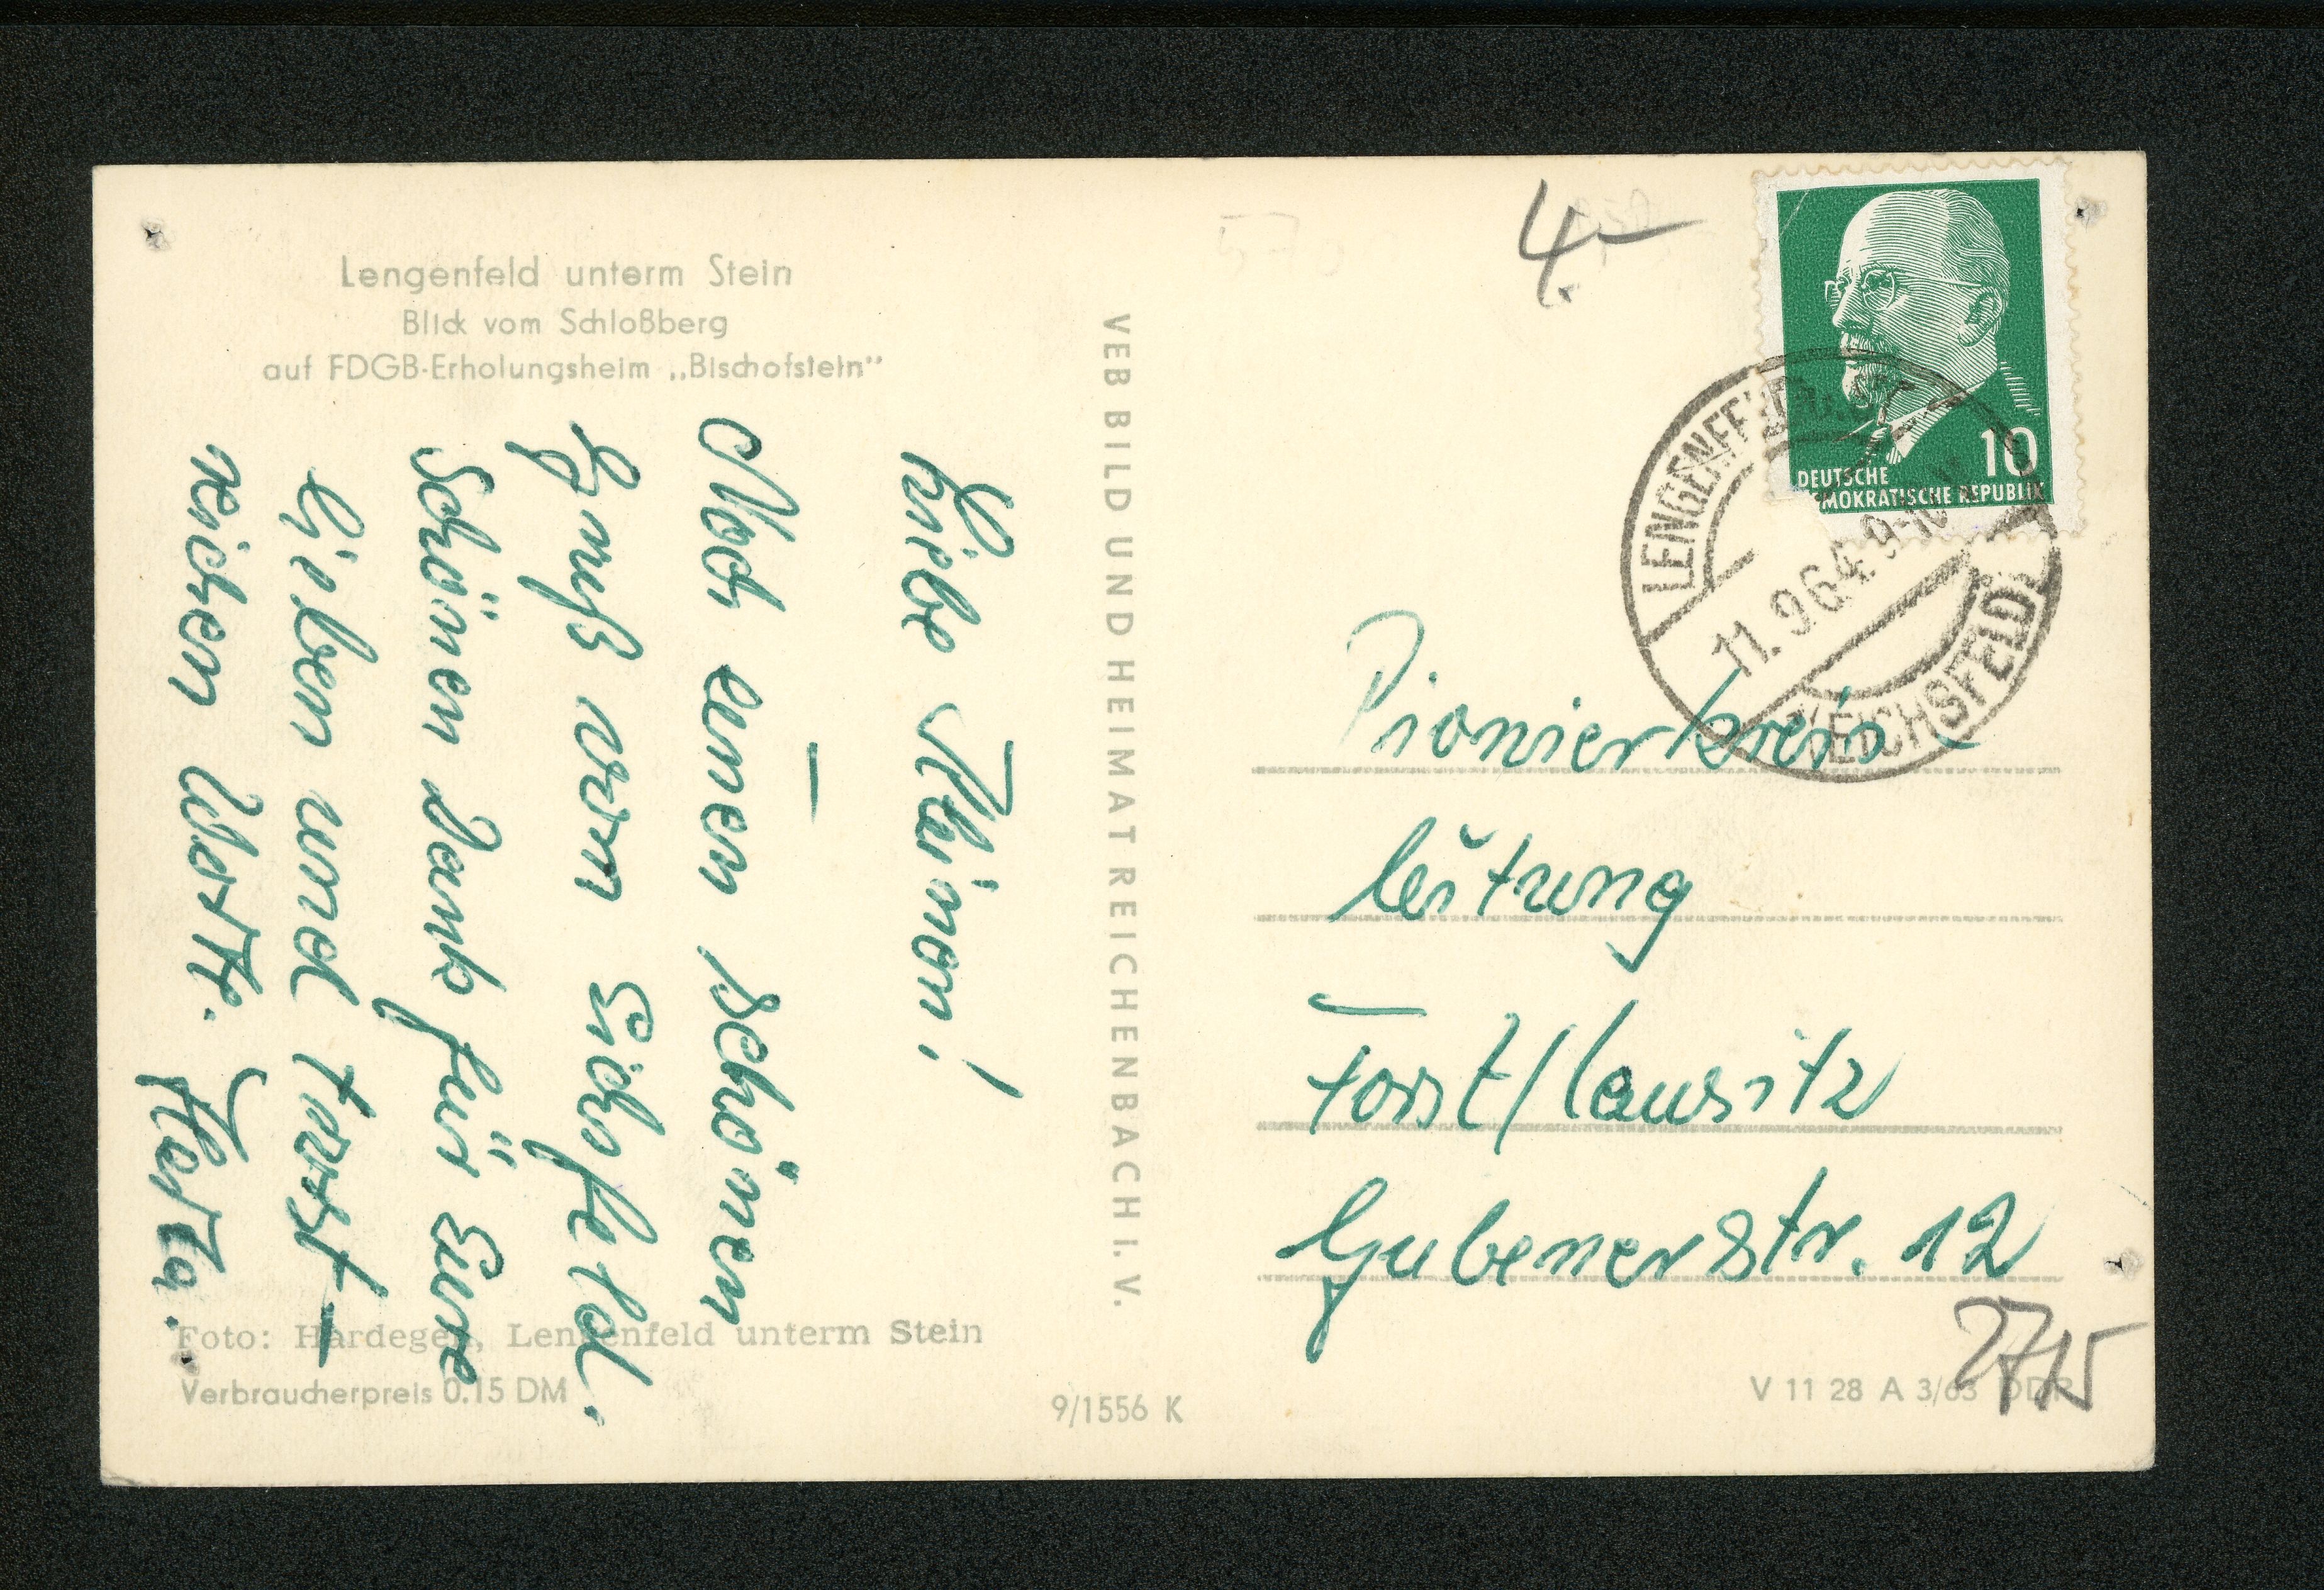 Lengenfeld unterm Stein
Blick vom Schloßberg
auf FDGB-Erholungsheim „Bischofstein“
Liebe
Noch einen schönen
Gruß vom Eichsfeld.
Schönen Dank für Eure
lieben und trost-
reichen Worte. Herta.
Foto: Hardegen, Lengenfeld unterm Stein
Verbraucherpreis 0.15 DM
VEB BILD UND HEIMAT REICHENBACH I. V.
9/1556 K
4.-
10
DEUTSCHE
DEMOKRATISCHE REPUBLIK
LENGENFELD u. ST.
11.9.64.9-10
EICHSFELD
Pionierkreis-
leitung
Forst/Lausitz
Gubenerstr. 12
V 11 28 A 3/63 DDR